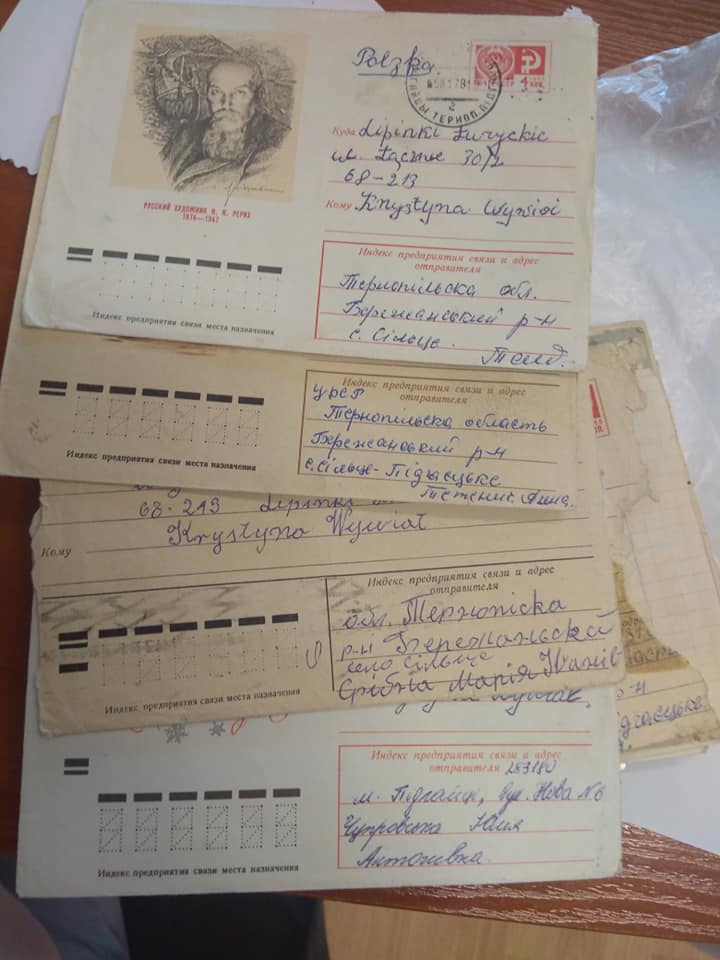 Polska
4 коп.
РУССКИЙ ХУДОЖНИК Н. К. РЕРИХ
1874—1947
Куда Lipinki Łużyckie
ul. Łączna 30/2
68-213
Кому Krystyna
Индекс предприятия связи и адрес
отправителя
Тернопільска обл.
Бережанський р-н
с. Сільце
Индекс предприятия связи места назначения
Индекс предприятия связи и адрес
отправителя
УРСР
Тернопільска область
Бережанський р-н
с. Сільце-Підгаєцьке
Анна.
Индекс предприятия связи места назначения
68-213 Lipinki
Кому Krystyna
Индекс предприятия связи и адрес
отправителя
обл. Тернопіска
р-н Бережаньский
село Сільце
Срібна Марія Іванів
Индекс предприятия связи места назначения
Индекс предприятия связи и адрес
отправителя 283180
м. Підгайці, вул. Нова №6
Чупровська Юлія
Антонівна.
Индекс предприятия связи места назначения